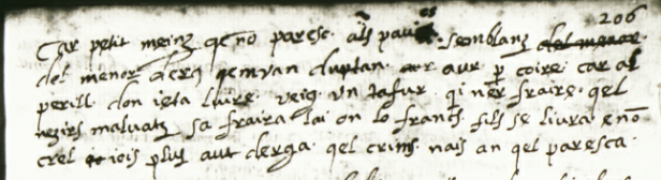 206
Car petit meinz qe nō parese. als pauc es. semblanz del menor
del menor derg qem van cuptan. aur per coire. car al
perill. don ieta liure. veig. vn tafur. qi ner fraire. qel
negirs maluatz sa fraira lai on lo francs filz se liura. e nō
crei iois pluz aut derga. qel crims nais an qel paresca.